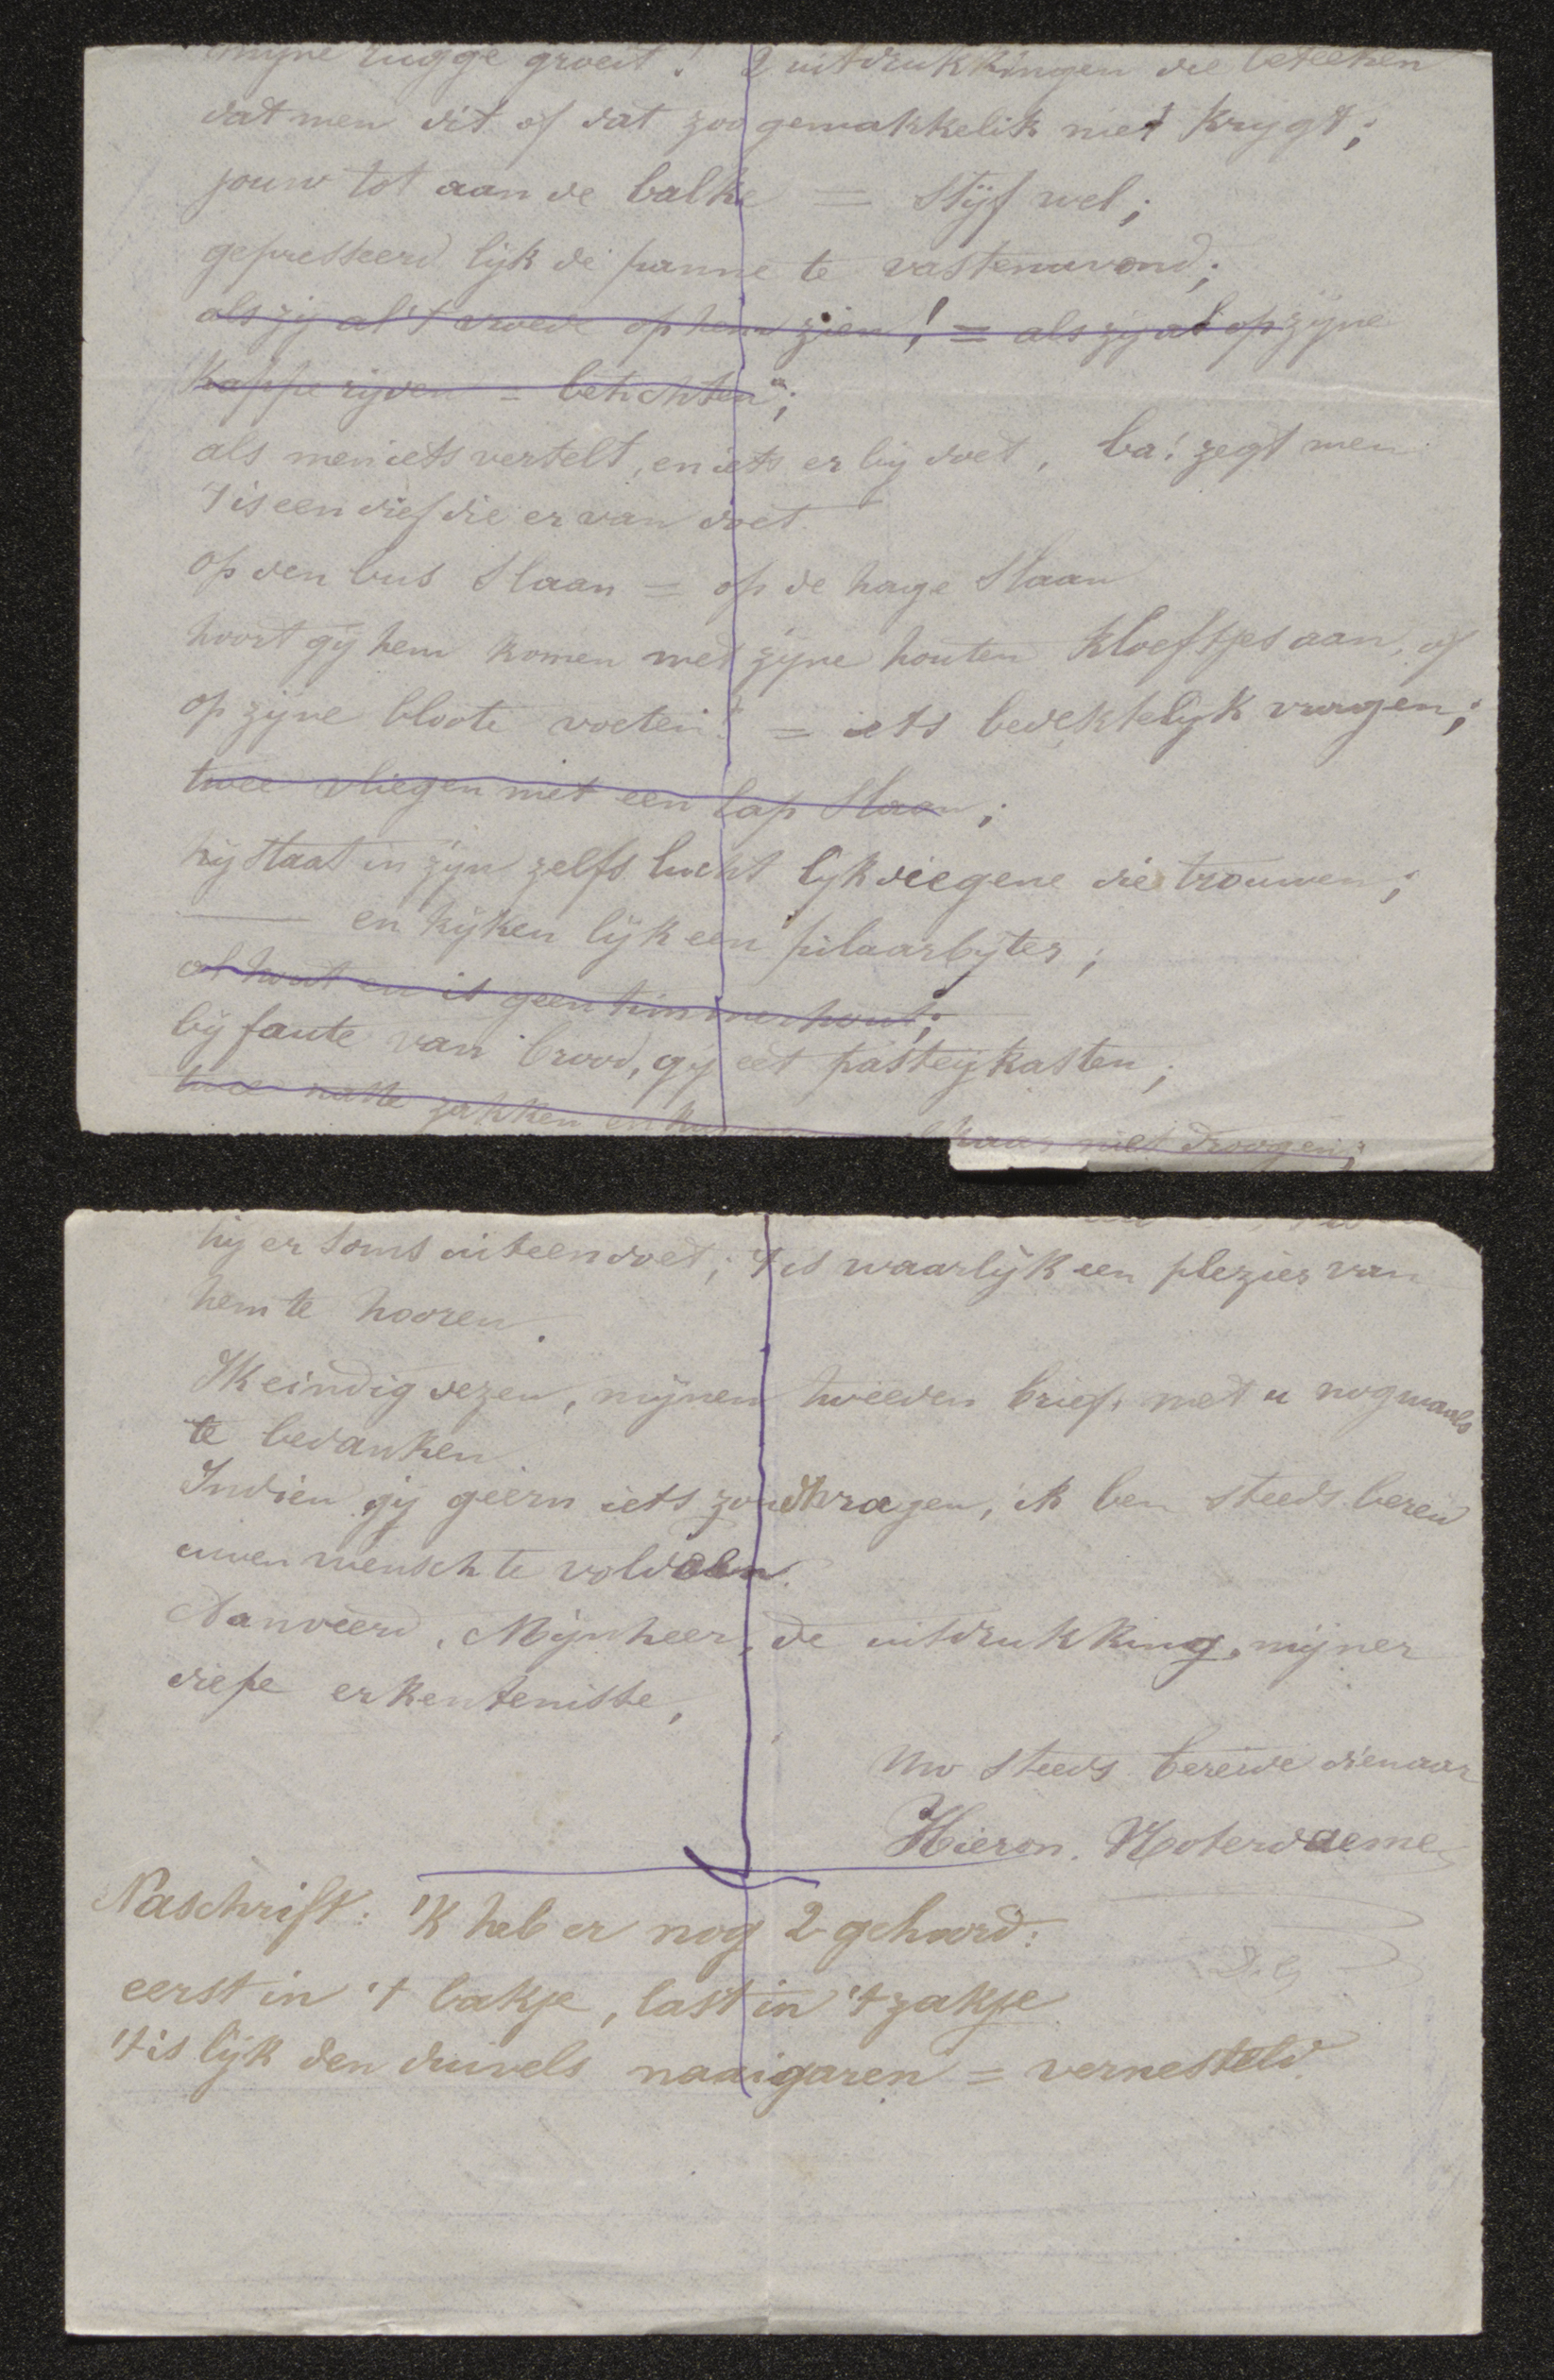 mijne rugge groeit! 2 uitdrukkingen die beteeken
dat men dit of dat zoo gemakkelik niet krygt;
jouw tot aan de balke = styf wel;
gepresseerd lijk de panne te vastenavond;
als zij al 't vroede op hem zien! = als zij al op zijne
kappe rijden = betichten";
als men iets vertelt, en iets er bij doet, ba! zegt men
't is een dief die er van doet
op den bus slaan = op de hage slaan
hoort gij hem komen met zijne houten kloeftjes aan, of
op zijne bloote voeten? = iets bedektelijk vragen;
twee vliegen met een lap slaan;
hij staat in zijn zelfs lucht lijk diegene die trouwen;
—— en kijken lijk een pilaarbijter;
al hout en is geen timmerhout;
bij faute van brood, gij eet pasteijkasten;
twee natte zakken en haar niet droogen;
hij er soms uiteendoet; 't is waarlijk een plezier van
hem te hooren.
Ik eindig dezen, mijnen tweeden brief, met u nogmaals
te bedanken.
Indien gij geern iets zoudt vragen, ik ben steeds bereid
uwen wensch te voldoen.
Aanveerd, Mijnheer, de uitdrukking, mijner
diepe erkentenisse,
Uw steeds bereide dienaar
Hieron. Noterdaeme
Naschrift: 'k heb er nog 2 gehoord:
eerst in 't bakje, last in 't zakje
't is lijk den duivels naaigaren = vernesteld.